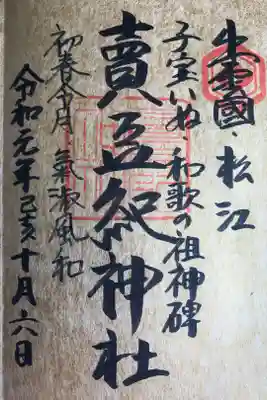 出雲國 松江
子宝いぬ 和歌の祖神碑
賣豆紀神社
初春令月 氣淑風和
令和元年己亥十月六日